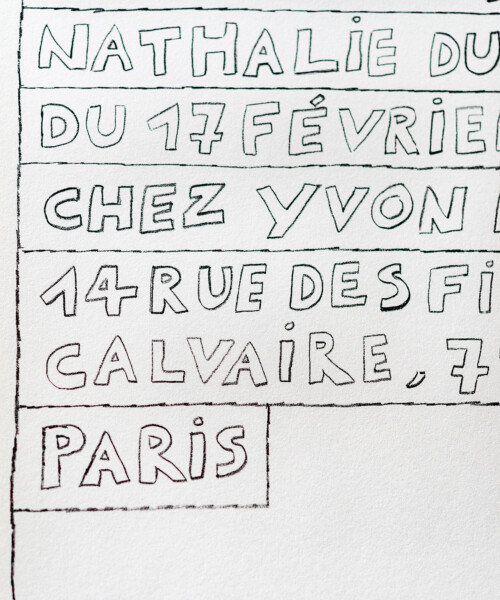 NATHALiE DU
DU 17 FÉVRiE
CHEZ YVON
14 RUE DES Fi
CALVAiRE, 7
PARiS